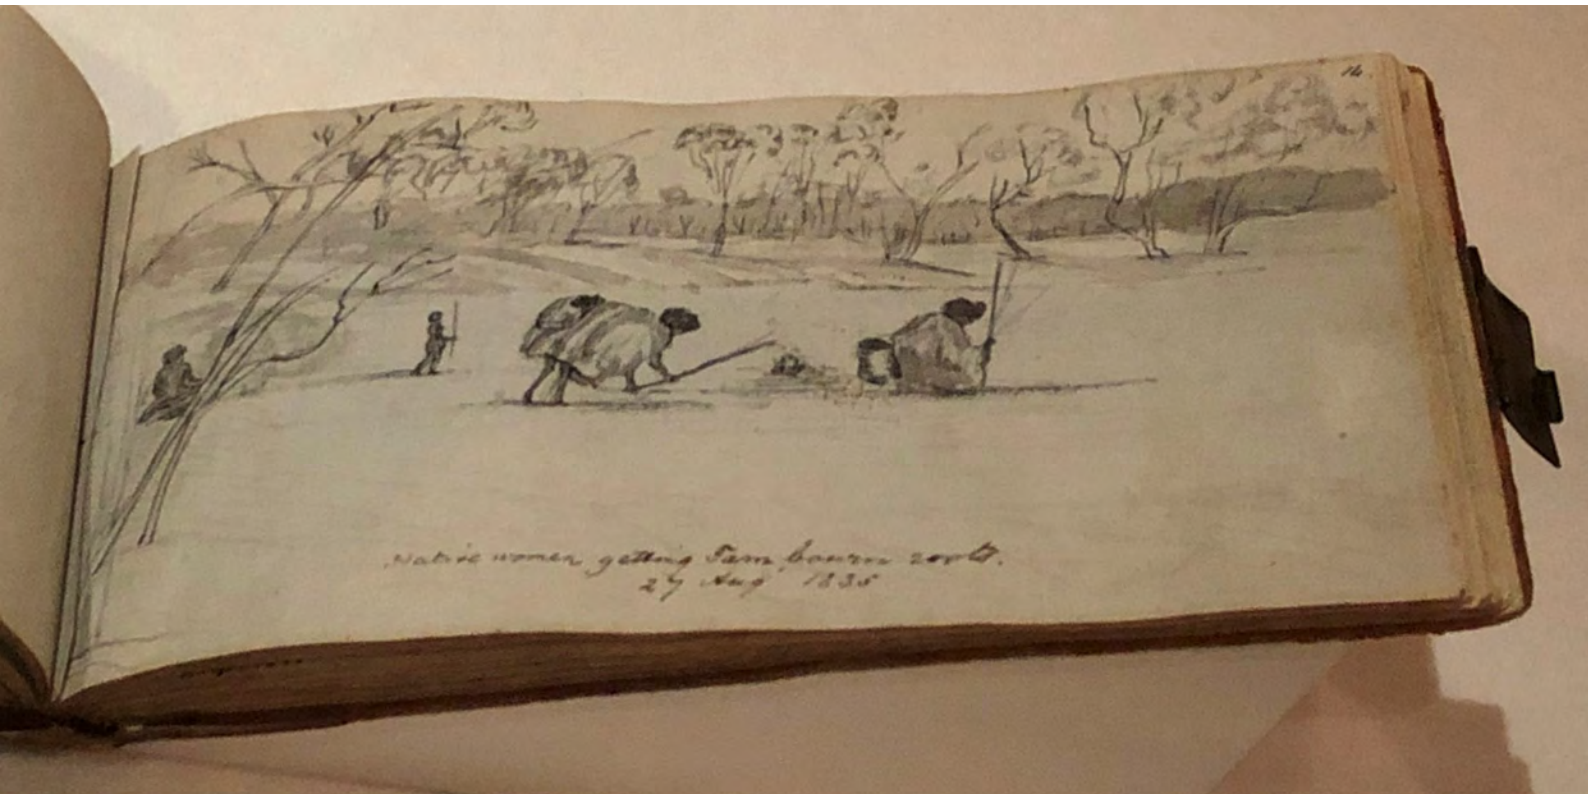 16.
Native women getting Tam bourn roots.
27 Aug 1835